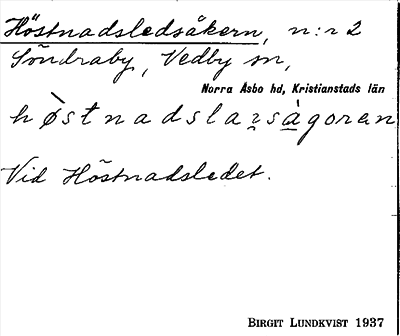 Höstnadsledsåkern, n:r 2
Söndraby, Vedby sn,
Norra Åsbo hd, Kristianstads län
Vid Höstnadsledet.
BIRGIT LUNDKVIST 1937